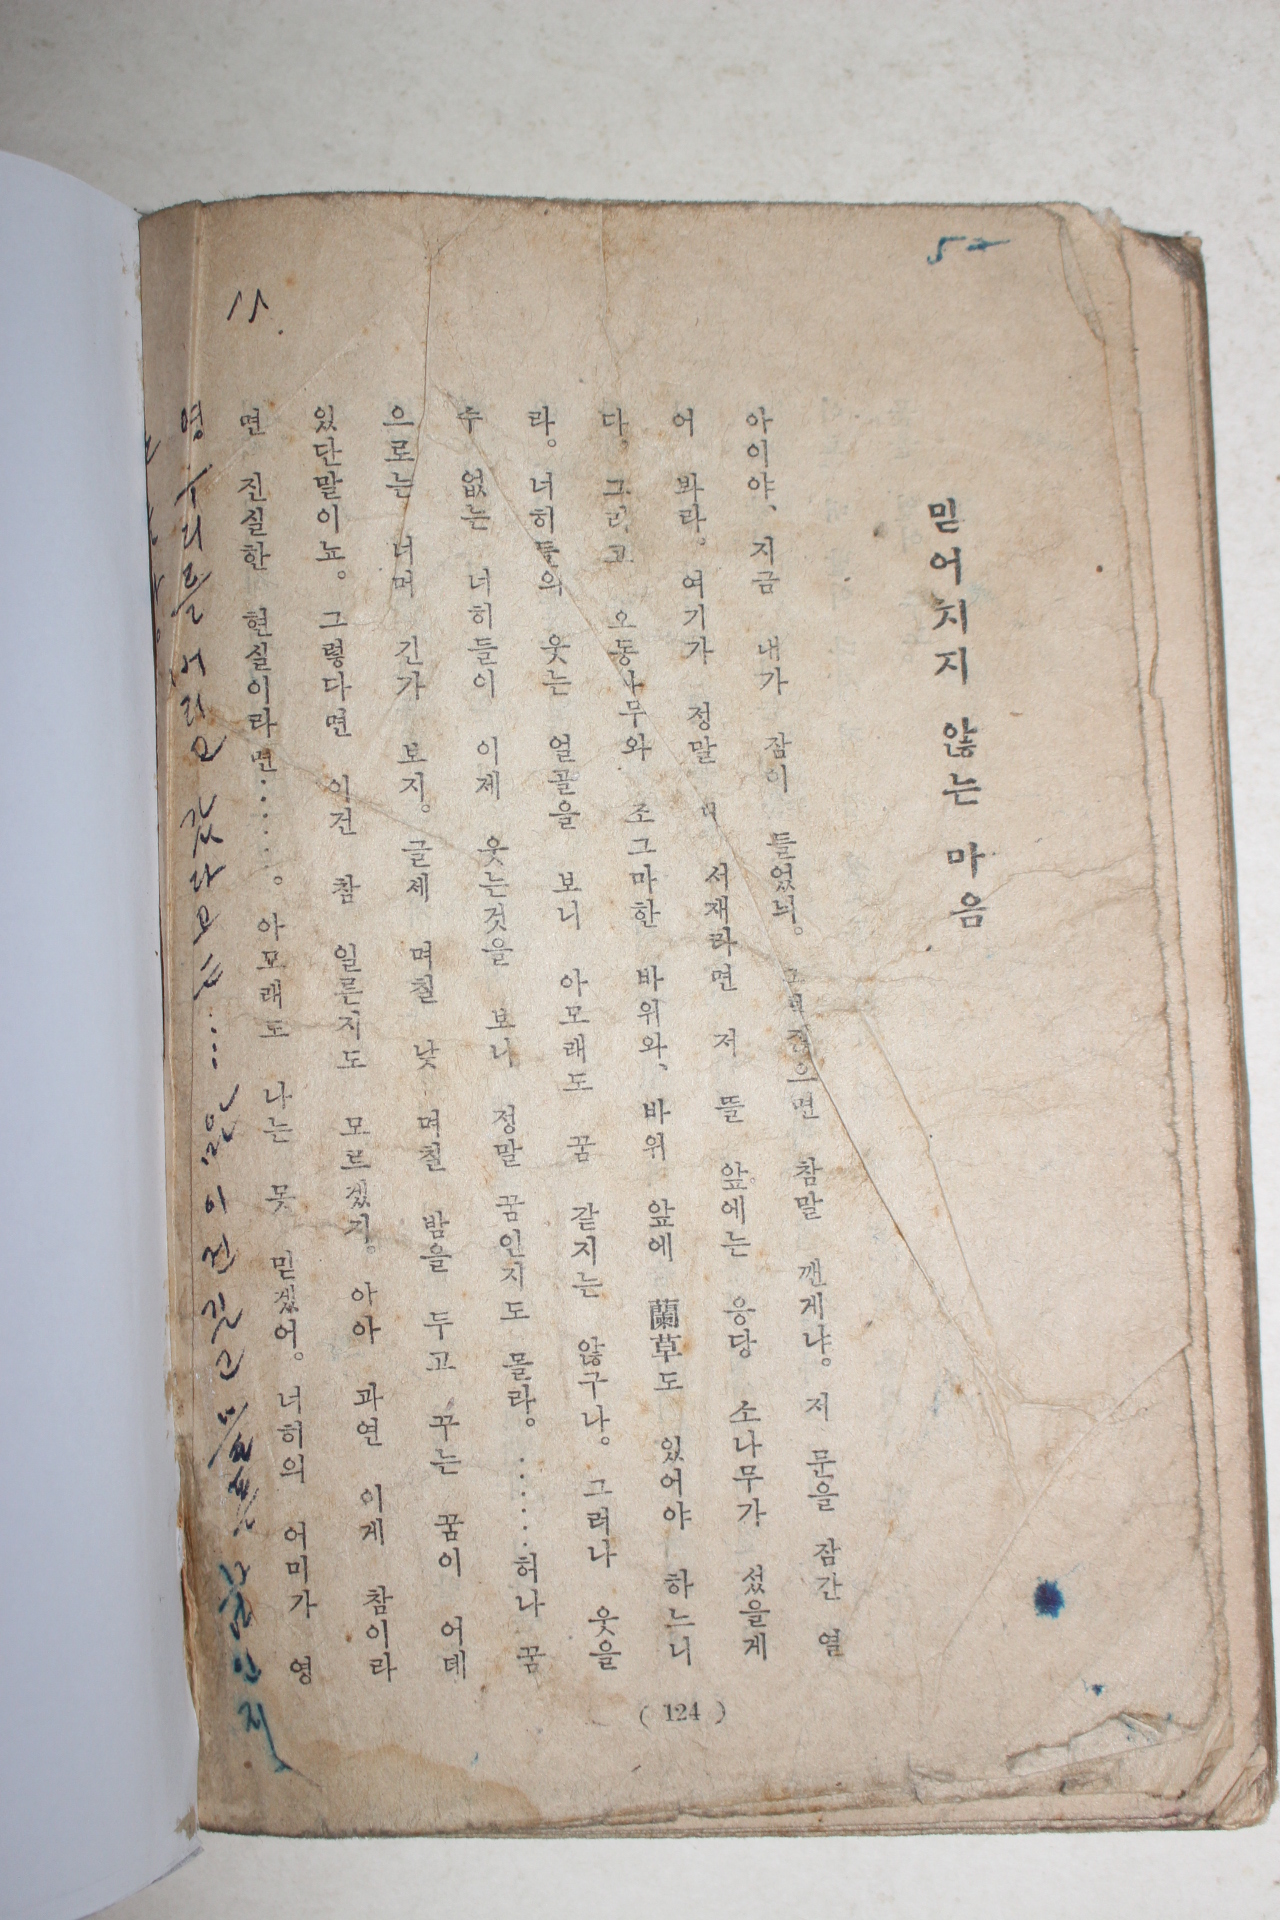 믿어치지 않는 마음
아이야、지금 내가 잠이 들었늬。 참말 깬게냐。저 문을 잠간 열
어 봐라。여기가 정말 내 서재라면 저 뜰 앞에는 응당 소나무가 섰을게
다。그리고 오동나무와 조그마한 바위와、바위 앞에 蘭草도 있어야 하느니
라。너히들의 웃는 얼골을 보니 아모래도 꿈 같지는 않구나。그러나 웃을
수 없는 너히들이 이제 웃는것을 보니 정말 꿈인지도 몰라。……허나 꿈
으로는 너머 긴가 보지。글세 며칠 낮 며칠 밤을 두고 꾸는 꿈이 어데
있단말이뇨。그렇다면 이건 참 일른지도 모르겠지。아아 과연 이게 참이라
면 진실한 현실이라면……。아모래도 나는 못 믿겠어。너히의 어미가 영
영 우리를 버리고 갔다고는…… 이건 꿈인지
(124)